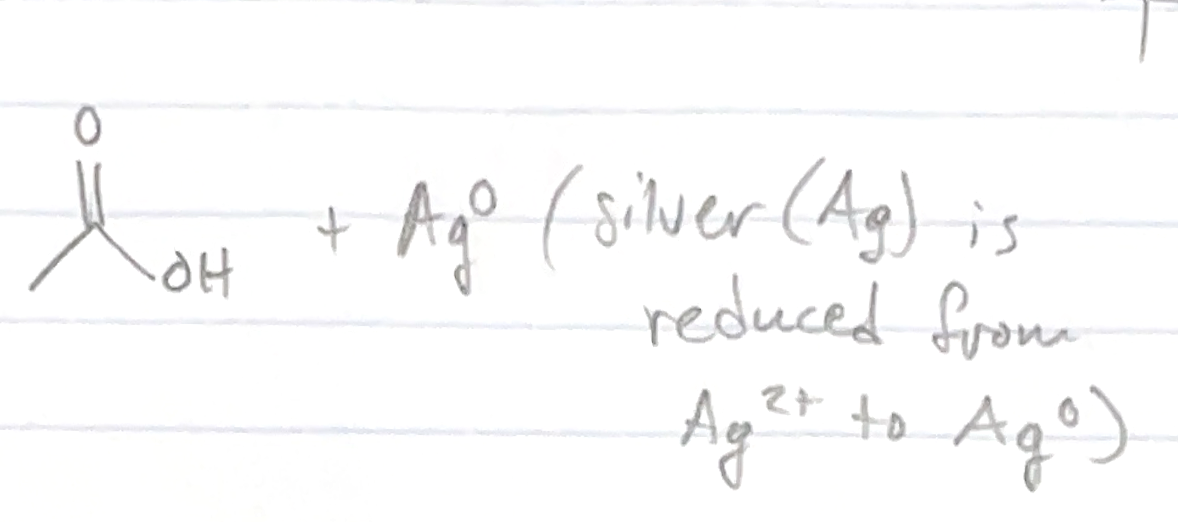 O
OH
+ Ag⁰ (silver (Ag) is
reduced from
Ag²⁺ to Ag⁰)